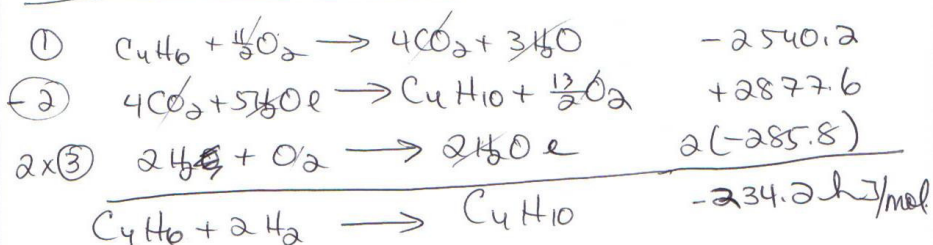 ① C4H6 + 11/2 O2 → 4CO2 + 3H2O -2540.2
-② 4CO2 + 5H2Ol → C4H10 + 13/2 O2 +2877.6
2x③ 2H2 + O2 → 2H2O l 2(-285.8)
C4H6 + 2H2 → C4H10 -234.2 kJ/mol